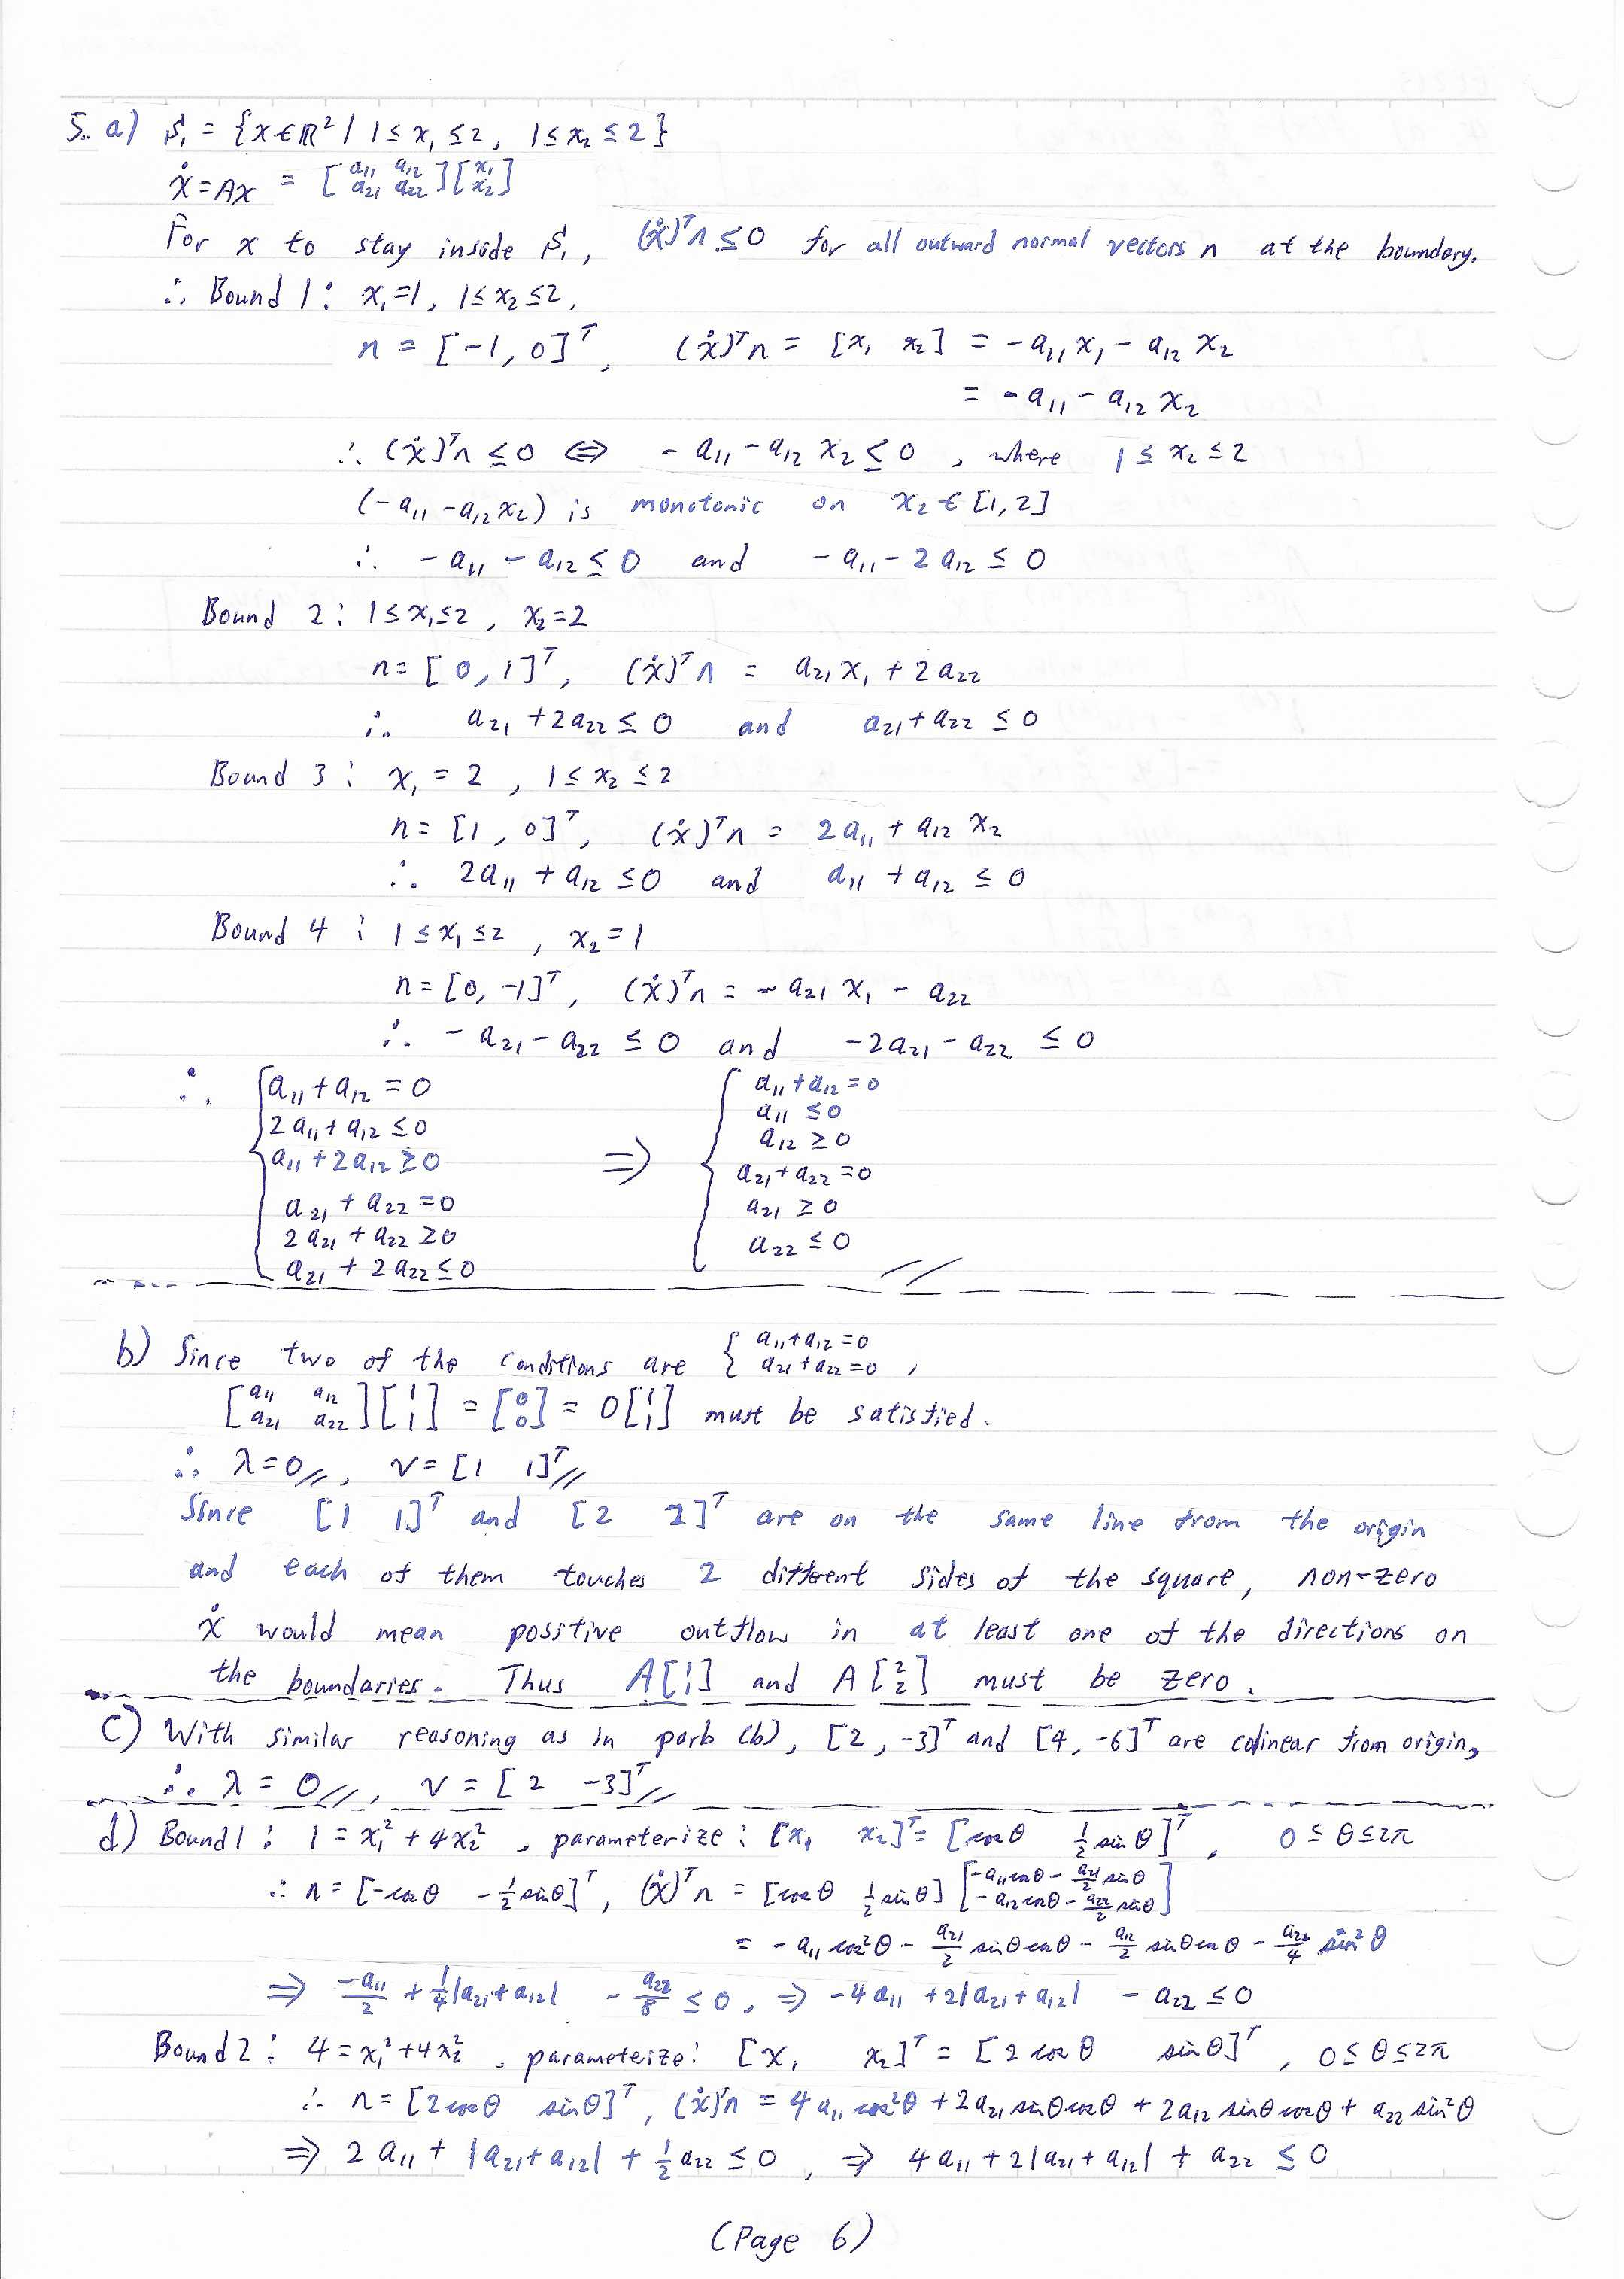 5. a) S₁ = {x ∈ ℝ² | 1 ≤ x₁ ≤ 2, 1 ≤ x₂ ≤ 2}
ẋ = Ax = [a₁₁ a₁₂; a₂₁ a₂₂][x₁; x₂]
For x to stay inside S₁, (ẋ)ᵀn ≤ 0 for all outward normal vectors n at the boundary.
∴ Bound 1: x₁=1, 1≤x₂≤2,
n = [-1, 0]ᵀ, (ẋ)ᵀn = [x₁ x₂] = -a₁₁x₁ - a₁₂x₂
= -a₁₁ - a₁₂x₂
∴ (ẋ)ᵀn ≤ 0 ⇔ -a₁₁ - a₁₂x₂ ≤ 0, where 1 ≤ x₂ ≤ 2
(-a₁₁ - a₁₂x₂) is monotonic on x₂ ∈ [1, 2]
∴ -a₁₁ - a₁₂ ≤ 0 and -a₁₁ - 2a₁₂ ≤ 0
Bound 2: 1≤x₁≤2, x₂=2
n = [0, 1]ᵀ, (ẋ)ᵀn = a₂₁x₁ + 2a₂₂
∴ a₂₁ + 2a₂₂ ≤ 0 and a₂₁ + a₂₂ ≤ 0
Bound 3: x₁ = 2, 1 ≤ x₂ ≤ 2
n = [1, 0]ᵀ, (ẋ)ᵀn = 2a₁₁ + a₁₂x₂
∴ 2a₁₁ + a₁₂ ≤ 0 and a₁₁ + a₁₂ ≤ 0
Bound 4: 1 ≤ x₁ ≤ 2, x₂ = 1
n = [0, -1]ᵀ, (ẋ)ᵀn = -a₂₁x₁ - a₂₂
∴ -a₂₁ - a₂₂ ≤ 0 and -2a₂₁ - a₂₂ ≤ 0
∴ { a₁₁ + a₁₂ = 0 { a₁₁ + a₁₂ = 0
2a₁₁ + a₁₂ ≤ 0 a₁₁ ≤ 0
a₁₁ + 2a₁₂ ≥ 0 ⇒ a₁₂ ≥ 0
a₂₁ + a₂₂ = 0 a₂₁ + a₂₂ = 0
2a₂₁ + a₂₂ ≥ 0 a₂₁ ≥ 0
a₂₁ + 2a₂₂ ≤ 0 a₂₂ ≤ 0
b) Since two of the conditions are { a₁₁+a₁₂=0; a₂₁+a₂₂=0,
[a₁₁ a₁₂; a₂₁ a₂₂][1; 1] = [0; 0] = 0[1; 1] must be satisfied.
∴ λ=0, v = [1 1]ᵀ
Since [1 1]ᵀ and [2 2]ᵀ are on the same line from the origin
and each of them touches 2 different sides of the square, non-zero
ẋ would mean positive outflow in at least one of the directions on
the boundaries. Thus A[1; 1] and A[2; 2] must be zero.
c) With similar reasoning as in parb (b), [2, -3]ᵀ and [4, -6]ᵀ are colinear from origin,
∴ λ = 0, v = [2 -3]ᵀ
d) Bound 1: 1 = x₁² + 4x₂², parameterize: [x₁ x₂]ᵀ = [cosθ ½sinθ]ᵀ, 0 ≤ θ ≤ 2π
∴ n = [-cosθ -½sinθ]ᵀ, (ẋ)ᵀn = [cosθ ½sinθ][-a₁₁cosθ - a₂₁/2 sinθ; -a₁₂cosθ - a₂₂/2 sinθ]
= -a₁₁cos²θ - a₂₁/2 sinθcosθ - a₁₂/2 sinθcosθ - a₂₂/4 sin²θ
⇒ -a₁₁/2 + ¼|a₂₁+a₁₂| - a₂₂/8 ≤ 0, ⇒ -4a₁₁ + 2|a₂₁+a₁₂| - a₂₂ ≤ 0
Bound 2: 4 = x₁²+4x₂², parameterize: [x₁ x₂]ᵀ = [2cosθ sinθ]ᵀ, 0 ≤ θ ≤ 2π
∴ n = [2cosθ sinθ]ᵀ, (ẋ)ᵀn = 4a₁₁cos²θ + 2a₂₁sinθcosθ + 2a₁₂sinθcosθ + a₂₂sin²θ
⇒ 2a₁₁ + |a₂₁+a₁₂| + ½a₂₂ ≤ 0, ⇒ 4a₁₁ + 2|a₂₁+a₁₂| + a₂₂ ≤ 0
(Page 6)